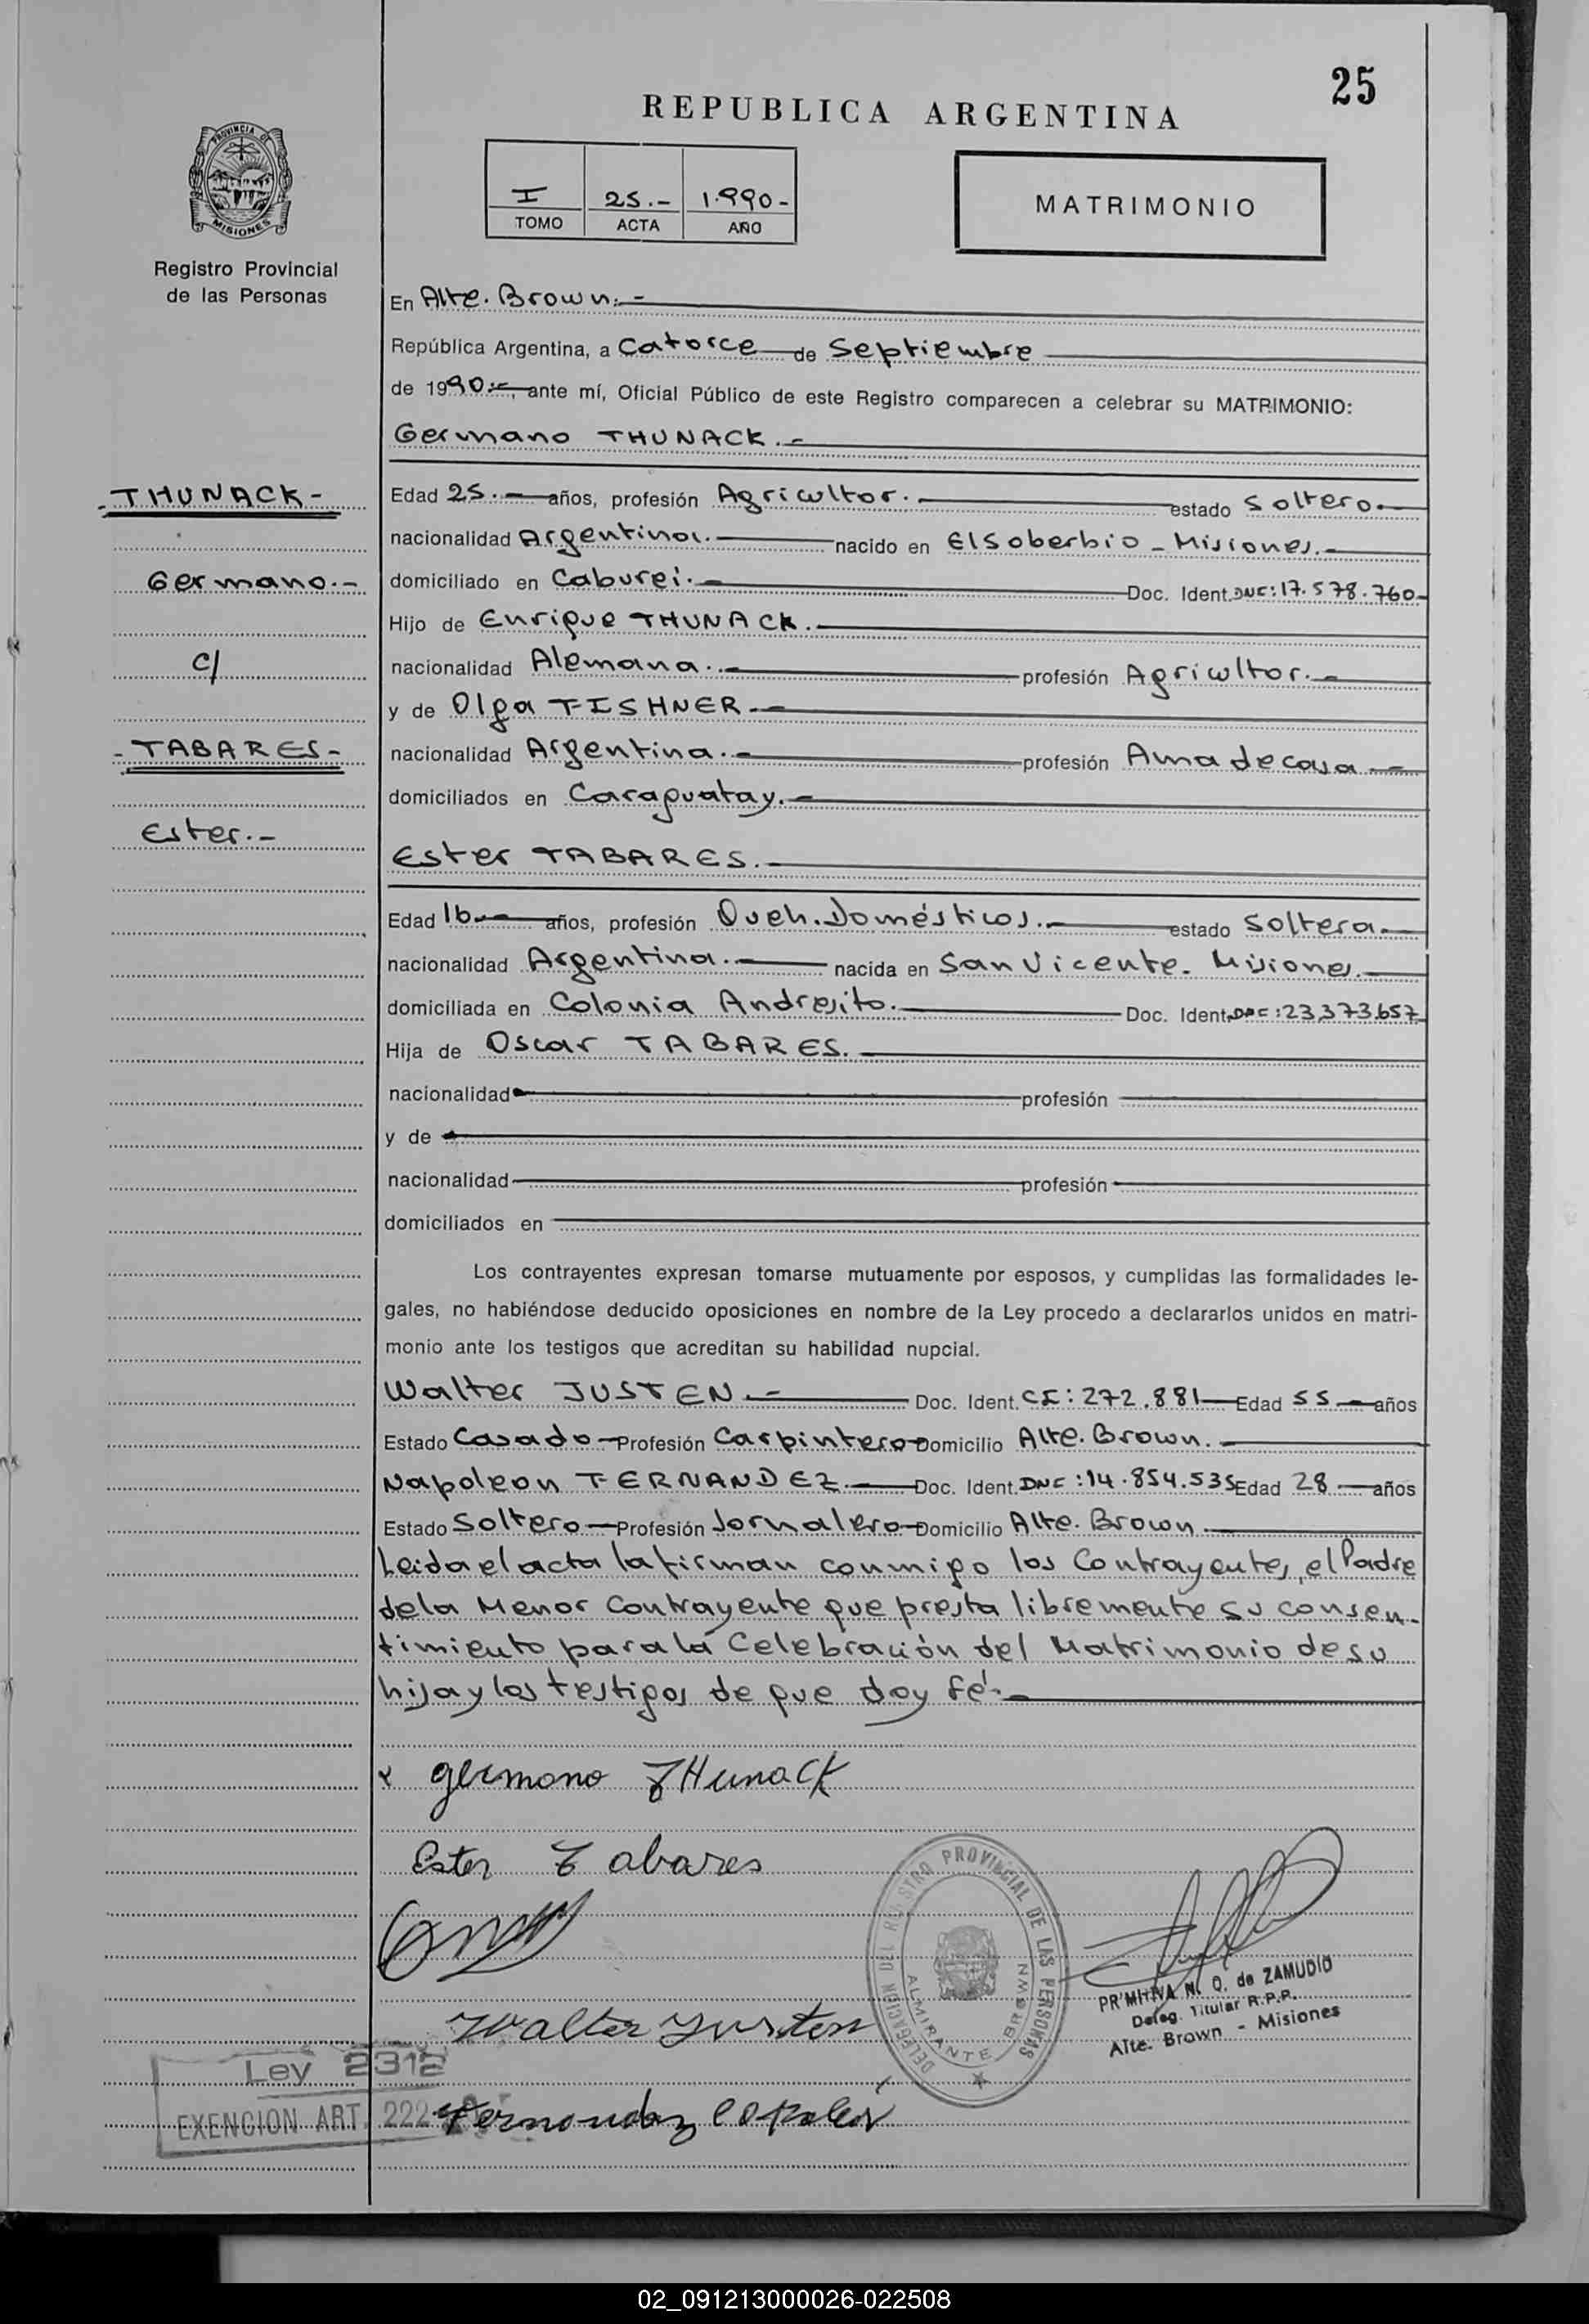 25
REPUBLICA ARGENTINA
PROVINCIA DE
MISIONES
Registro Provincial
de las Personas
I 25.- 1.990-
TOMO ACTA AÑO
MATRIMONIO
En Alte. Brown.-
República Argentina, a Catorce de Septiembre
de 1990.-, ante mí, Oficial Público de este Registro comparecen a celebrar su MATRIMONIO:
Germano THUNACK.-
THUNACK-
Edad 25.- años, profesión Agricultor. estado Soltero.-
nacionalidad Argentina.- nacido en El Soberbio - Misiones.-
Germano.-
domiciliado en Caburei.- Doc. Ident. DNI: 17.578.760-
Hijo de Enrique THUNACK.-
c/
nacionalidad Alemana.- profesión Agricultor.-
y de Olga FISHNER.-
-TABARES-
nacionalidad Argentina.- profesión Ama de casa.-
domiciliados en Caraguatay.-
Ester.-
Ester TABARES.-
Edad 16.- años, profesión Queh. Domésticos.- estado Soltera.-
nacionalidad Argentina.- nacida en San Vicente. Misiones.-
domiciliada en Colonia Andresito.- Doc. Ident. 23.373.657
Hija de Oscar TABARES.-
nacionalidad profesión
y de
nacionalidad profesión
domiciliados en
Los contrayentes expresan tomarse mutuamente por esposos, y cumplidas las formalidades le-
gales, no habiéndose deducido oposiciones en nombre de la Ley procedo a declararlos unidos en matri-
monio ante los testigos que acreditan su habilidad nupcial.
Walter JUSTEN.- Doc. Ident. CI: 272.881 Edad 55.- años
Estado Casado-Profesión Carpintero-Domicilio Alte. Brown.-
Napoleon FERNANDEZ.- Doc. Ident. DNI: 14.854.535 Edad 28 años
Estado Soltero-Profesión Jornalero-Domicilio Alte. Brown.-
Leida el acta la firman conmigo los Contrayentes, el Padre
de la Menor Contrayente que presta libremente su consen-
timiento para la Celebración del Matrimonio de su
hija y los testigos de que doy fé.-
x germano THunack
Ester Tabares
DELEGACION DEL REGISTRO PROVINCIAL DE LAS PERSONAS
ALMIRANTE BROWN
PRIMITIVA N. Q. de ZAMUDIO
Deleg. Titular R.P.P.
Alte. Brown - Misiones
Walter Justen
Ley 2312
EXENCION ART. 222
Fernandez
02_091213000026-022508